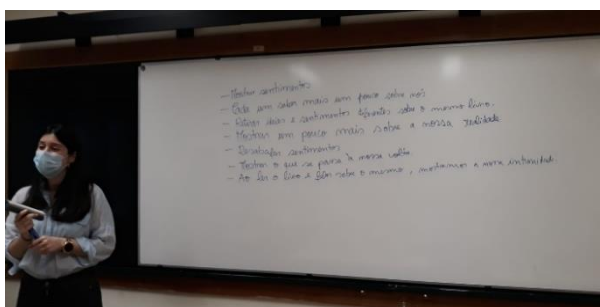 - Mostrar sentimentos
- Cada um saber mais um pouco sobre nós
- ideias e sentimentos diferentes sobre o mesmo livro.
- Mostrar um pouco mais sobre a nossa realidade
- Desabafar sentimentos
- Mostrar o que se passa à nossa volta
- Ao ler o livro e falar sobre o mesmo, mostramos a nossa intimidade.